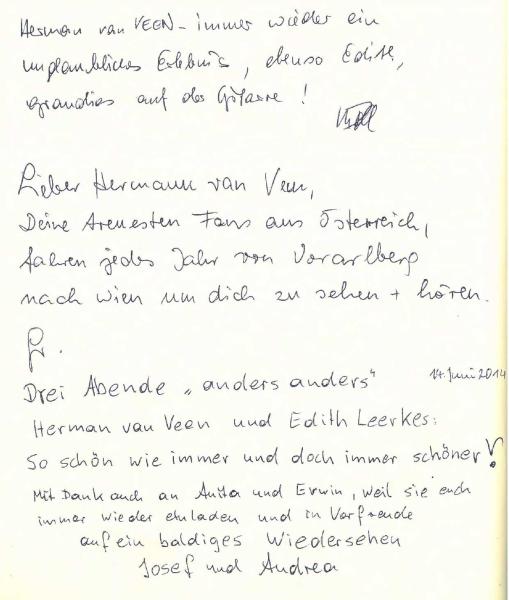 Herman van VEEN - immer wieder ein
unglaubliches Erlebnis, ebenso Edith,
grandios auf der Gitarre!
Lieber Hermann van Veen,
Deine treuesten Fans aus Österreich,
fahren jedes Jahr von Vorarlberg
nach Wien um dich zu sehen + hören.
14. Juni 2014
Drei Abende „anders anders“
Herman van Veen und Edith Leerkes:
So schön wie immer und doch immer schöner!
Mit Dank auch an Anita und Erwin, weil sie euch
immer wieder einladen und in Vorfreude
auf ein baldiges Wiedersehen
Josef und Andrea